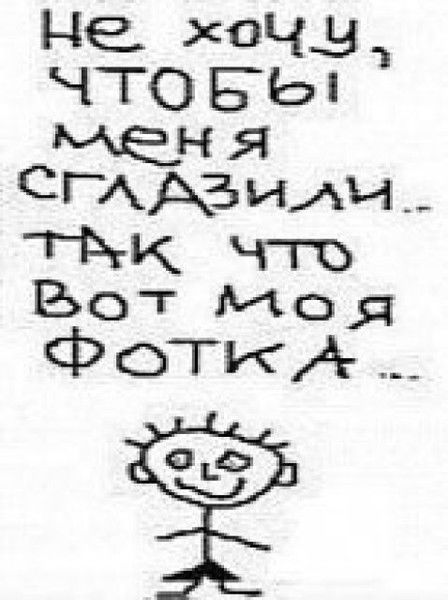 Не хочу,
чтобы
меня
сглазили..
так что
вот моя
фотка...